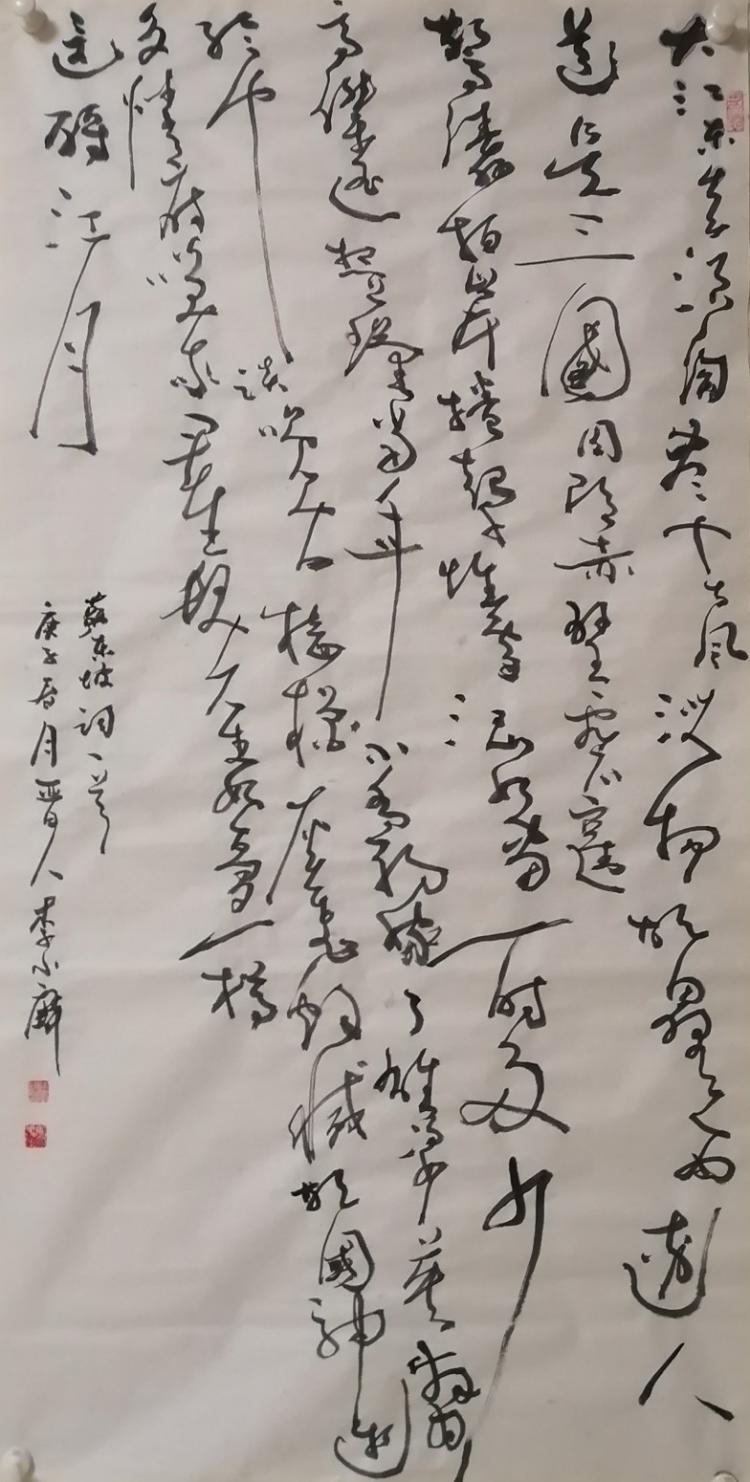 大江東去浪淘盡千古風流物故壘西邊人
道是三國周郎赤壁
驚濤拍岸捲起千堆雪江山如畫一時多少
豪傑遙想公瑾當年小喬初嫁了雄姿英發羽扇
綸巾談笑間檣櫓灰飛煙滅故國神遊
多情應笑我早生髮人生如夢一樽
還酹江月
蘇東坡詞一首
庚子春月晋人李小